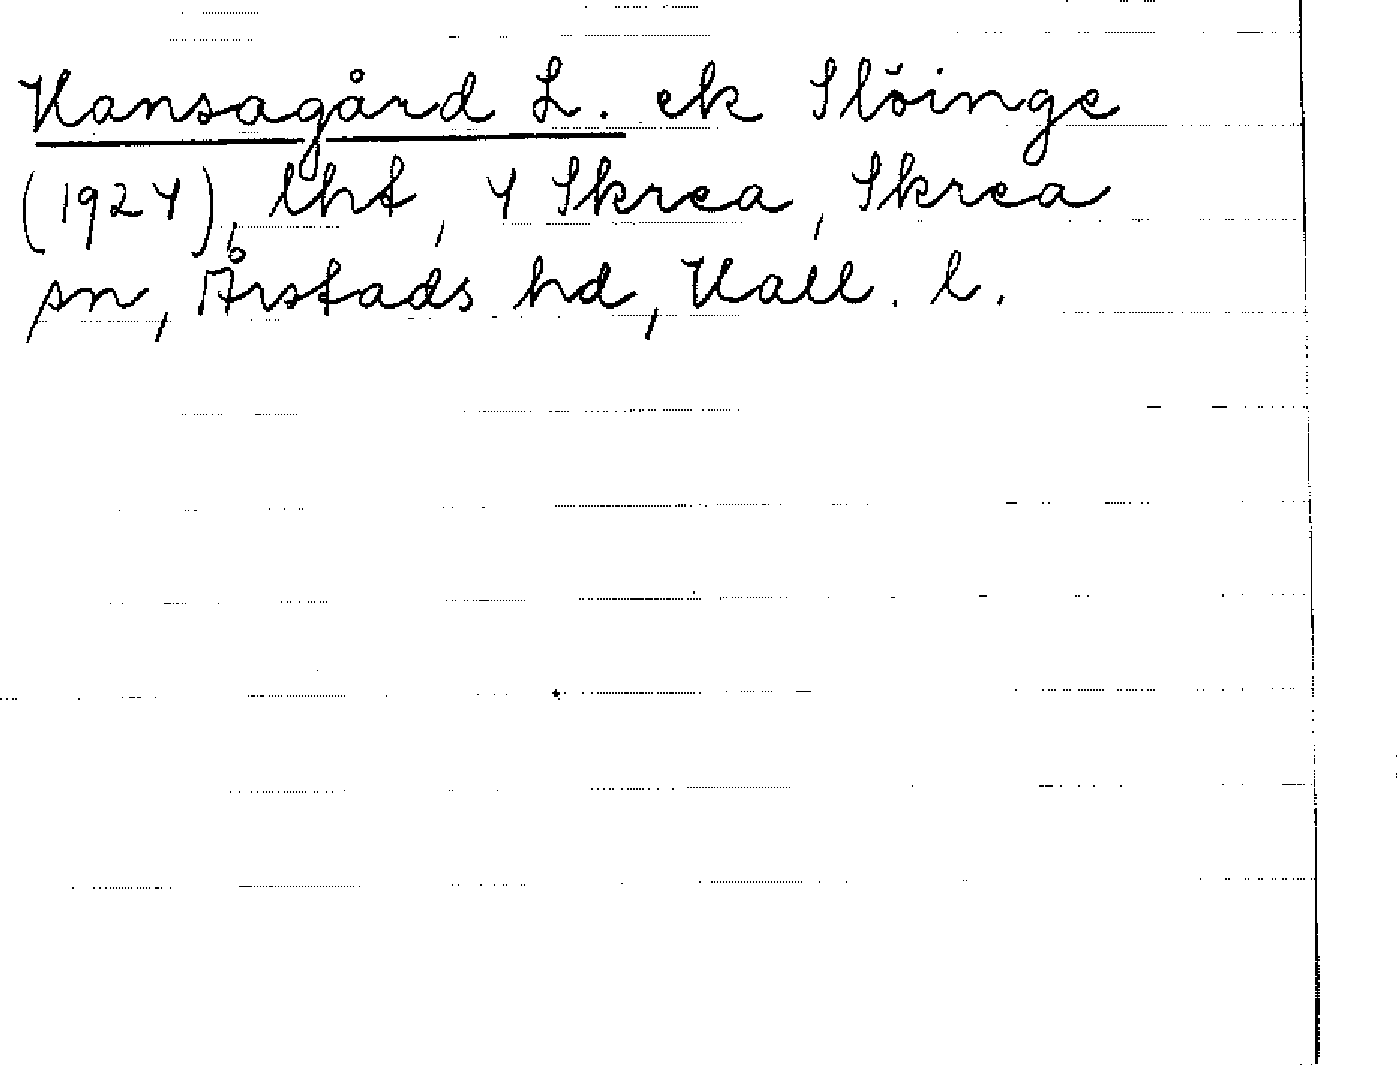 Hansagård L. ek Slöinge
(1924), lht, 4 Skrea, Skrea
sn, Årstads hd, Hall. l.